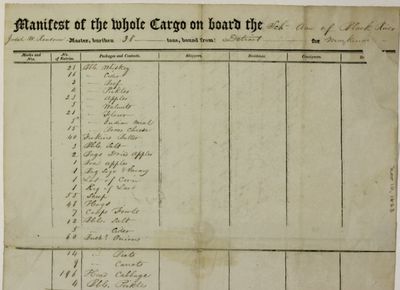 Manifest of the whole Cargo on board the Sch. Ann of Black River
Master, burthen 38 tons, bound from Detroit for
Marks and Nos. No. of Entries. Packages and Contents. Shippers. Residence. Consignees.
21 Bbls Whiskey
11 " Cider
3 " Beef
6 " Pickles
23 " Apples
5 " Walnuts
21 " Flour
5 " Indian Meal
15 " Cheese
40 Firkins Butter
3 Bbls Salt
2 Bags Dried Apples
1 Box Apples
1 Keg
1 Lot of Corn
1 Keg of Lard
55 Sheep
48 Hogs
7 Coops Fowls
12 Bbls Salt
5 " Cider
60 Bush. Onions
14 " Beets
9 " Carrots
196 Head Cabbage
4 Bbls Pickles